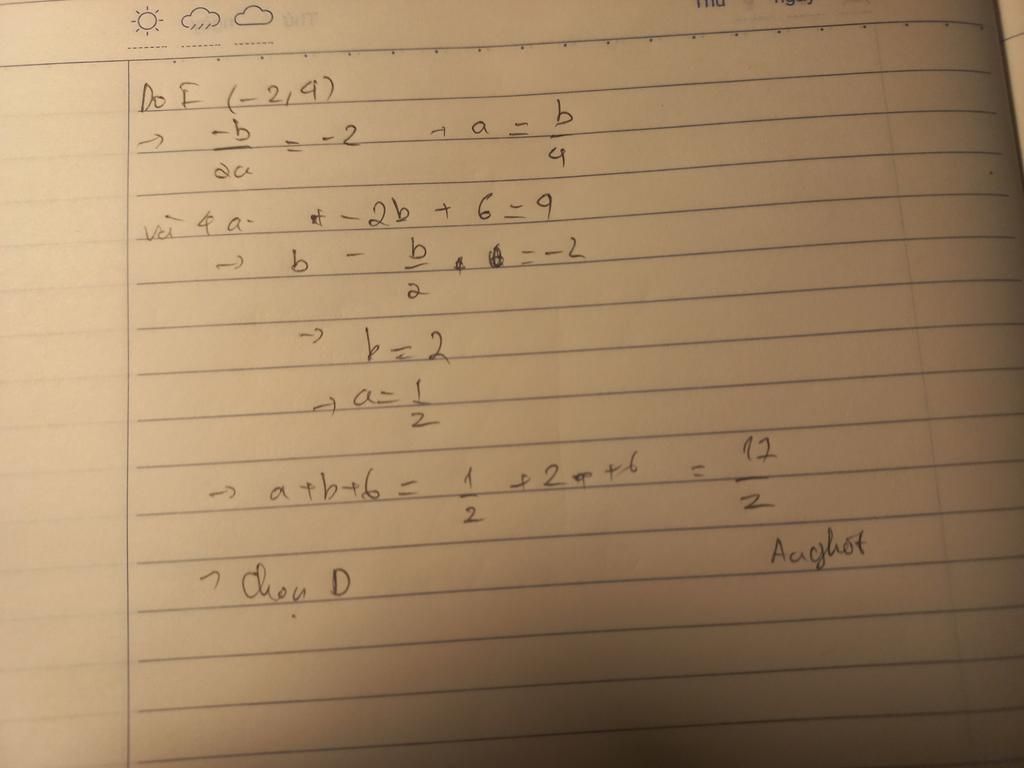 Thứ ngày
Do I (-2, 4)
→ -b/2a = -2 → a = b/4
và 4a + -2b + 6 = 4
→ b - b/2 . = -2
→ b = 2
→ a = 1/2
→ a+b+6 = 1/2 + 2 + 6 = 17/2
Aughot
→ Chọn D